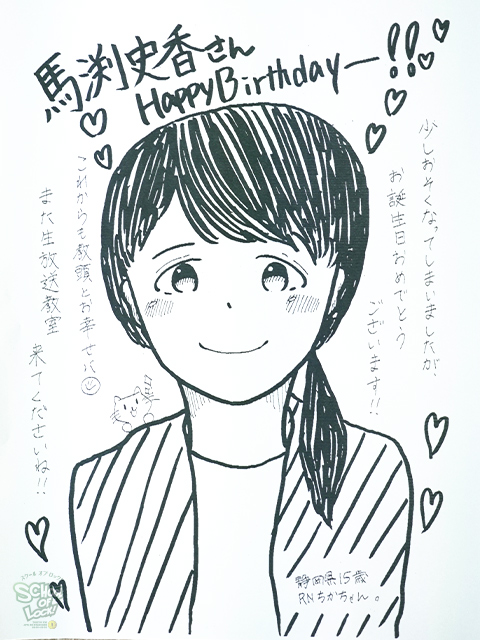 馬渕史香さん
Happy Birthdayー!!
少しおそくなってしまいましたが、
お誕生日おめでとう
ございます!!
これからも教頭とお幸せに
また生放送教室
来てくださいね!!
静岡県15歳
RNちかちゃん。
スクール オブ ロック!
SCHOOL
OF
LOCK!